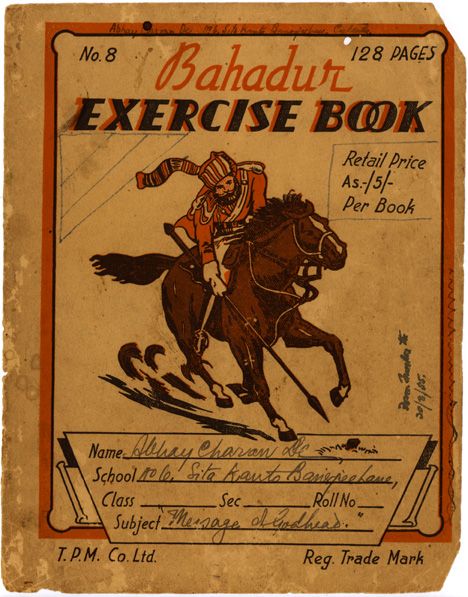 Abhay Charan De No 6, Sita Kanta Banerjee Lane, Calcutta
No. 8
128 PAGES
Bahadur
EXERCISE BOOK
Retail Price
As.-/5/-
Per Book
20/2/05.
Name Abhay Charan De
School No 6, Sita Kanta Banerjee Lane,
Class Sec Roll No
Subject "Message of Godhead."
T.P.M. Co. Ltd.
Reg. Trade Mark